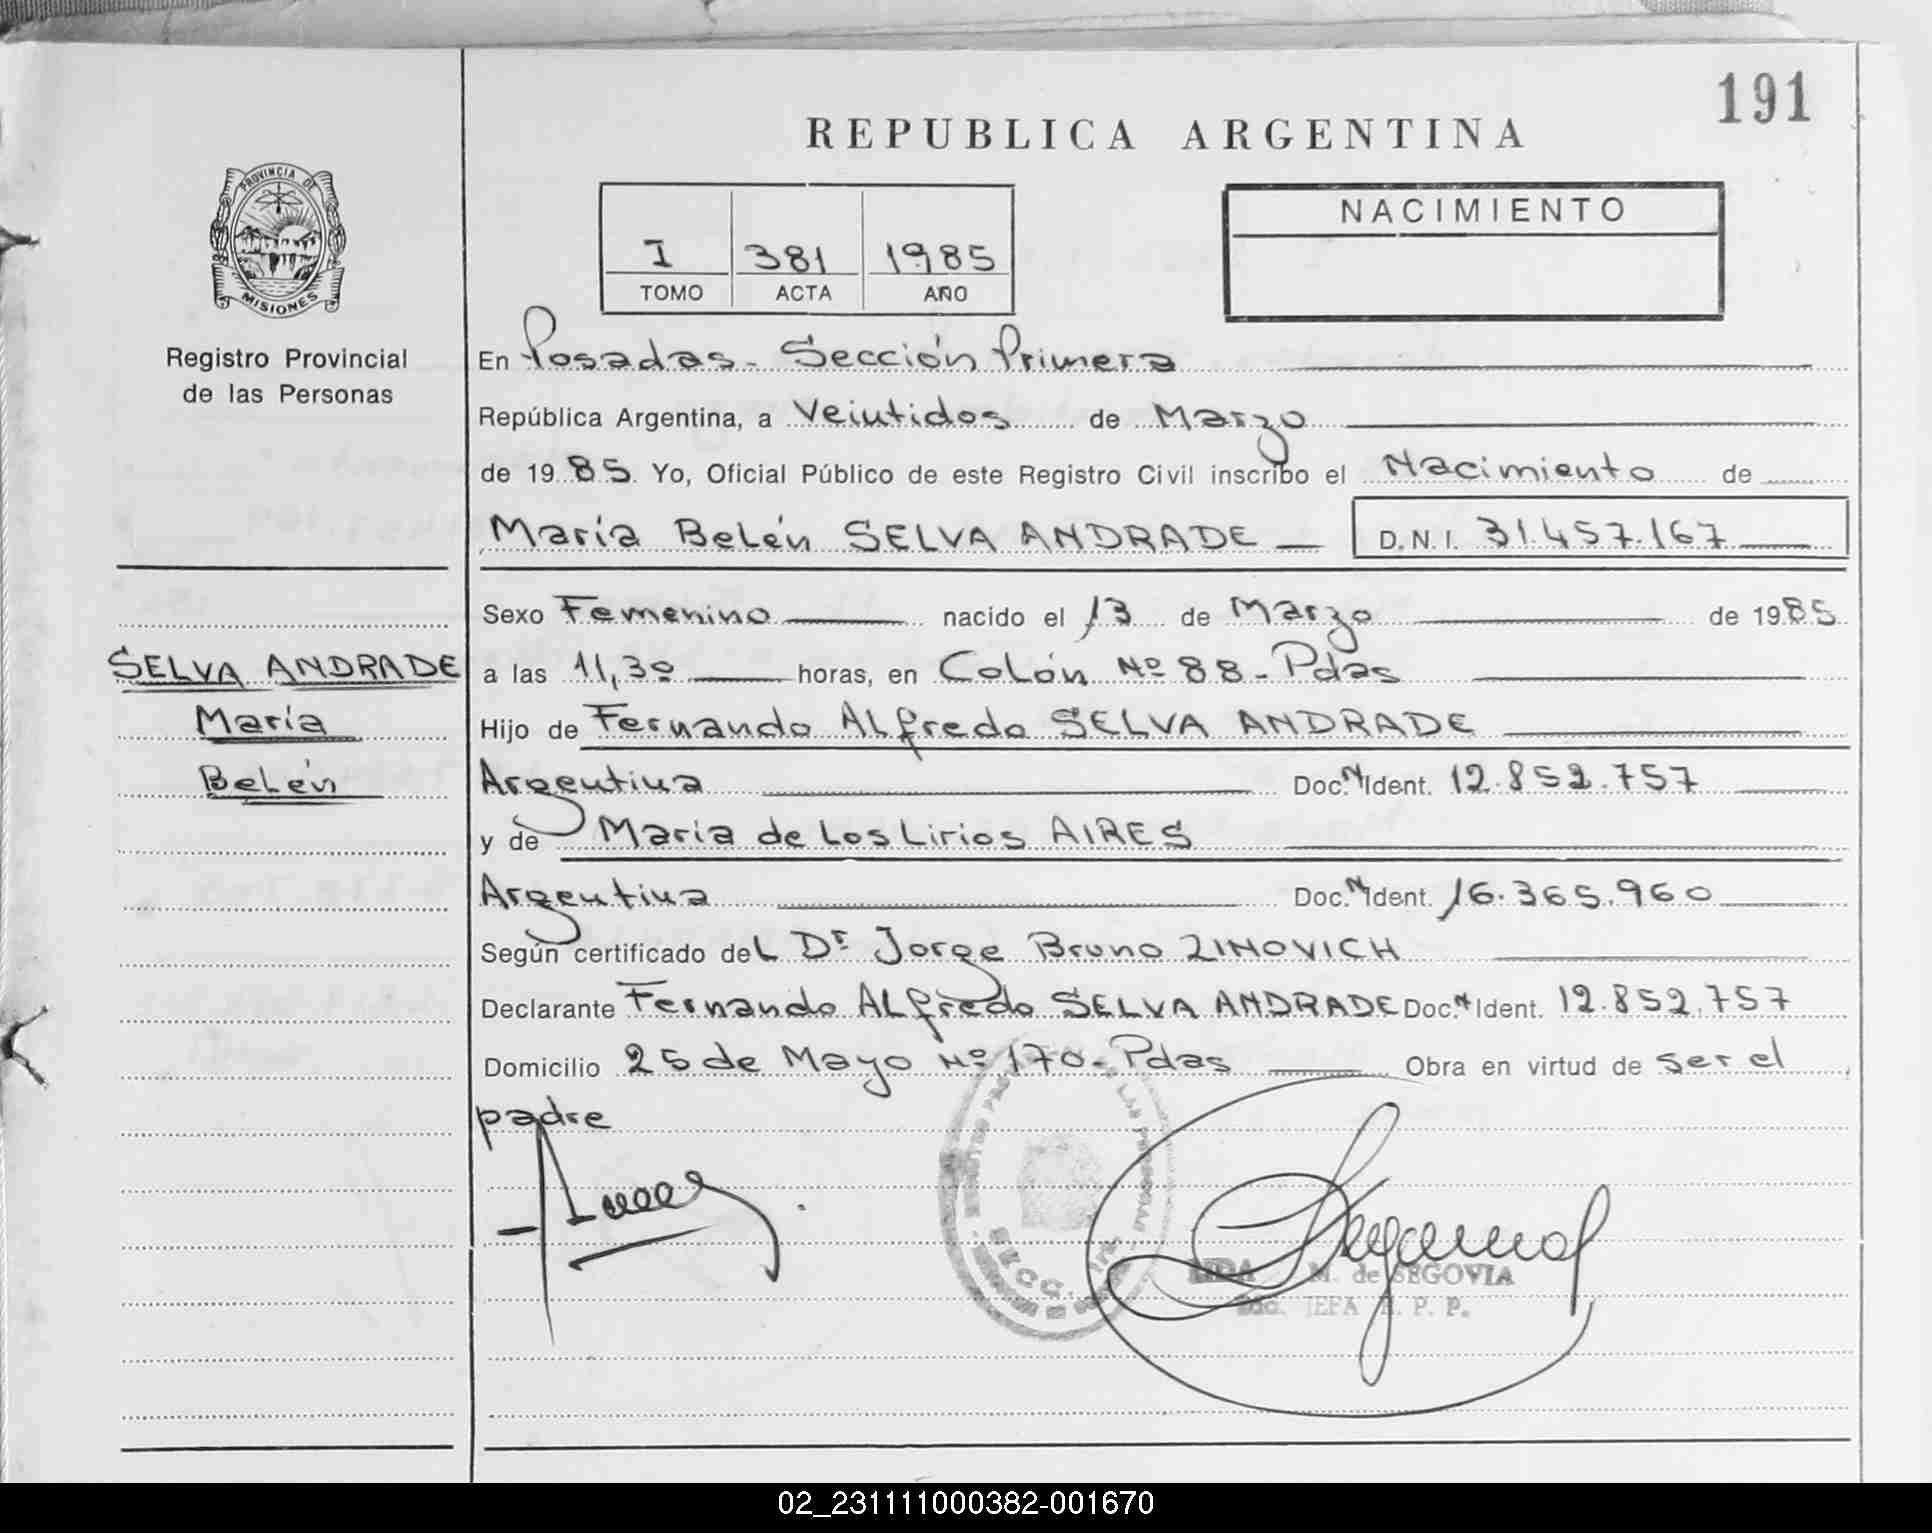 191
REPUBLICA ARGENTINA
PROVINCIA DE
MISIONES
I 381 1985
TOMO ACTA AÑO
NACIMIENTO
Registro Provincial
de las Personas
En Posadas - Sección Primera
República Argentina, a Veintidos de Marzo
de 1985. Yo, Oficial Público de este Registro Civil inscribo el Nacimiento de
María Belén SELVA ANDRADE D.N.I. 31.457.167
Sexo Femenino nacido el 13 de Marzo de 1985
SELVA ANDRADE
María
Belén
a las 11,30 horas, en Colón Nº 88 - Pdas
Hijo de Fernando Alfredo SELVA ANDRADE
Argentina Doc. N Ident. 12.852.757
y de María de Los Lirios AIRES
Argentina Doc. N Ident. 16.365.960
Según certificado del Dr Jorge Bruno ZINOVICH
Declarante Fernando Alfredo SELVA ANDRADE Doc. N Ident. 12.852.757
Domicilio 25 de Mayo Nº 170 - Pdas Obra en virtud de ser el
padre
M. de SEGOVIA
JEFA R. P. P.
02_231111000382-001670